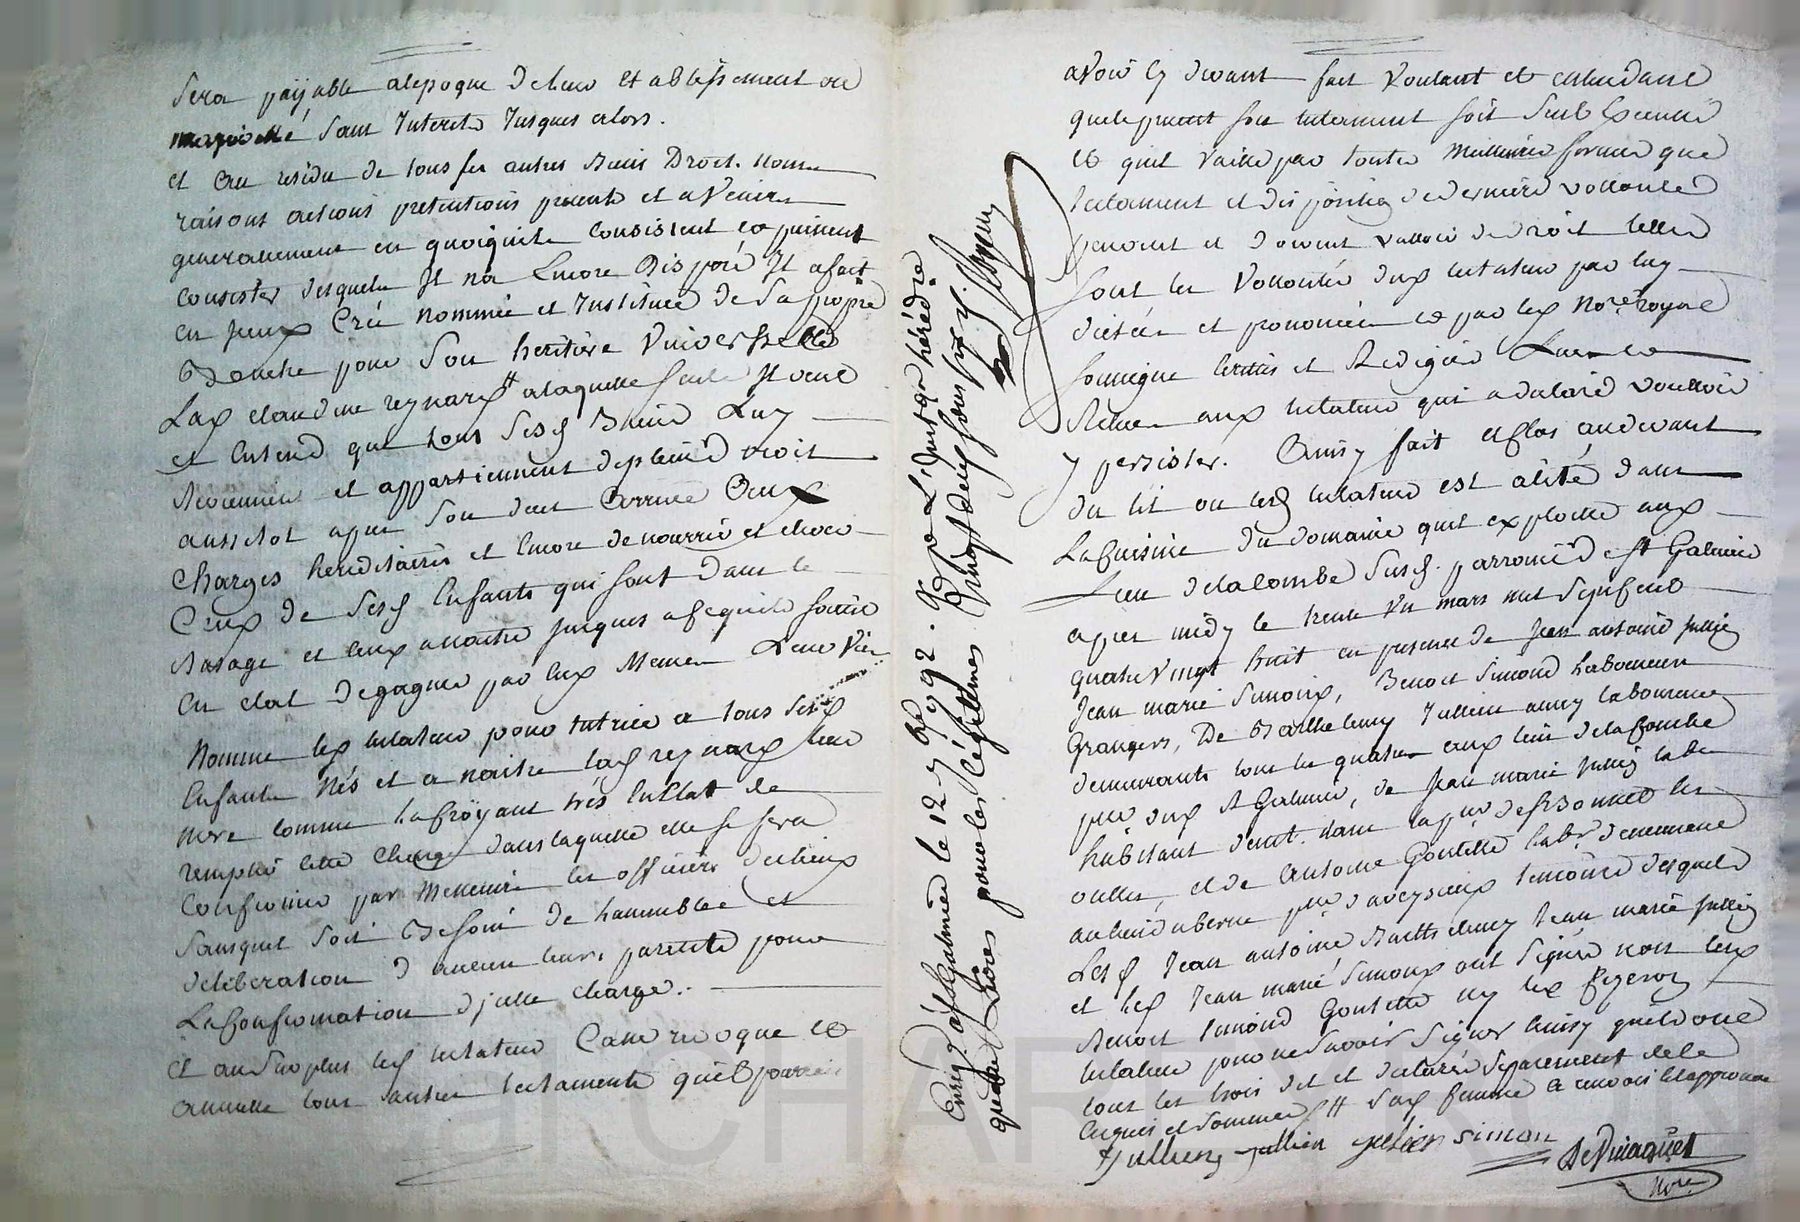 sera payable alepoque de leur etablissement ou
majorité sans Interets Jusques alors.
et au residu de tous ses autres Biens Droit. noms
raisons actions pretentions presents et avenirs
generalement en quoiquils consistent et puissent
consister desquels Il na Encore Disposé Il a fait
Créé nommée et Instituée de sa propre
Bouche pour son heritiere Universelle
claudine reynard alaquelle seule Il veut
et Entend que tous sesd Biens Luy
et appartiennent deplein droit
aussitot apres son deces arrivé aux
charges hereditaires et Encore de nourrir et
Ceux de sesd Enfants qui sont dans le
Basage et ceux anaitre jusques acequils soient
En etat degagner par Eux Memes Leur Vie
Nomme led testateur pour tutrice a tous sesd
Enfants Nés et a naitre lad reynard leur
mere comme la Croyant trés En Etat de
remplir cette charge dans laquelle elle se fera
Confirmer par Messieurs les officiers des lieux
sansquil soit Besoin de hassemblée et
deliberation d'aucun leurs parents pour
La Confirmation d'jcelle charge.
Et au surplus led testateur Casse revoque et
annulle tous autres testaments quil pourroit
Cinq a st Galmier le 12 7bre 92. Reçu L'Insn qn hérédre
quatre Livres pour les légitimes Vingt deux sous six d.
avoir cy devant fait voulant et entendant
quele present son testament soit seul Executé
et quil vaille par toutes Meilleures formes que
testament et disposition de derniere vollonté
peuvent et doivent valloir de droit telles
sont les Vollontés dud testateur par luy
dictées et prononcées et par led Nore. royal
soussigné Ecrites et Redigées Lues et
Relues aud testateur qui a declaré vouloir
y persister. Ainsy fait et clos audevant
du lit ou led testateur est alité dans
La Cuisine du domaine quil exploitte aud
Lieu delacombe susd. parroisse de st Galmier
apres midy le trente Un mars mil sept cent
quatre vingt huit en presence de Jean antoine jullien
Jean marie Simond, Benoit Simond Laboureurs
Grangers, De Barthelemy Jullien aussy laboureur
demeurants tous les quatre aud lieu delaCombe
psse dud st Galmier, de Jean marie jullien labr
habitant dans la psse de St Bonnet les
oulles, et de Antoine Goutelle labr. demeurant
au lieu psse d'aveyzieux temoins desquels
Lesd Jean antoine Barthelemy Jean marie jullien
et led Jean marie Simond ont signé non led
Benoit simond Goutelle ny led
testateur pour ne savoir signer Ainsy quils ont
tous les trois dit et declaré separement de ce
Enquis et sommés sad femme a renvoi et approuvé
Jullien jullien jullien simon
Nore.